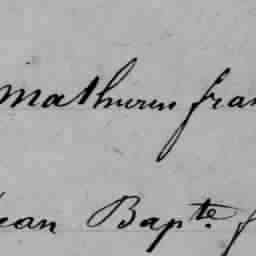 Mathurin fran
Jean Bapte. f